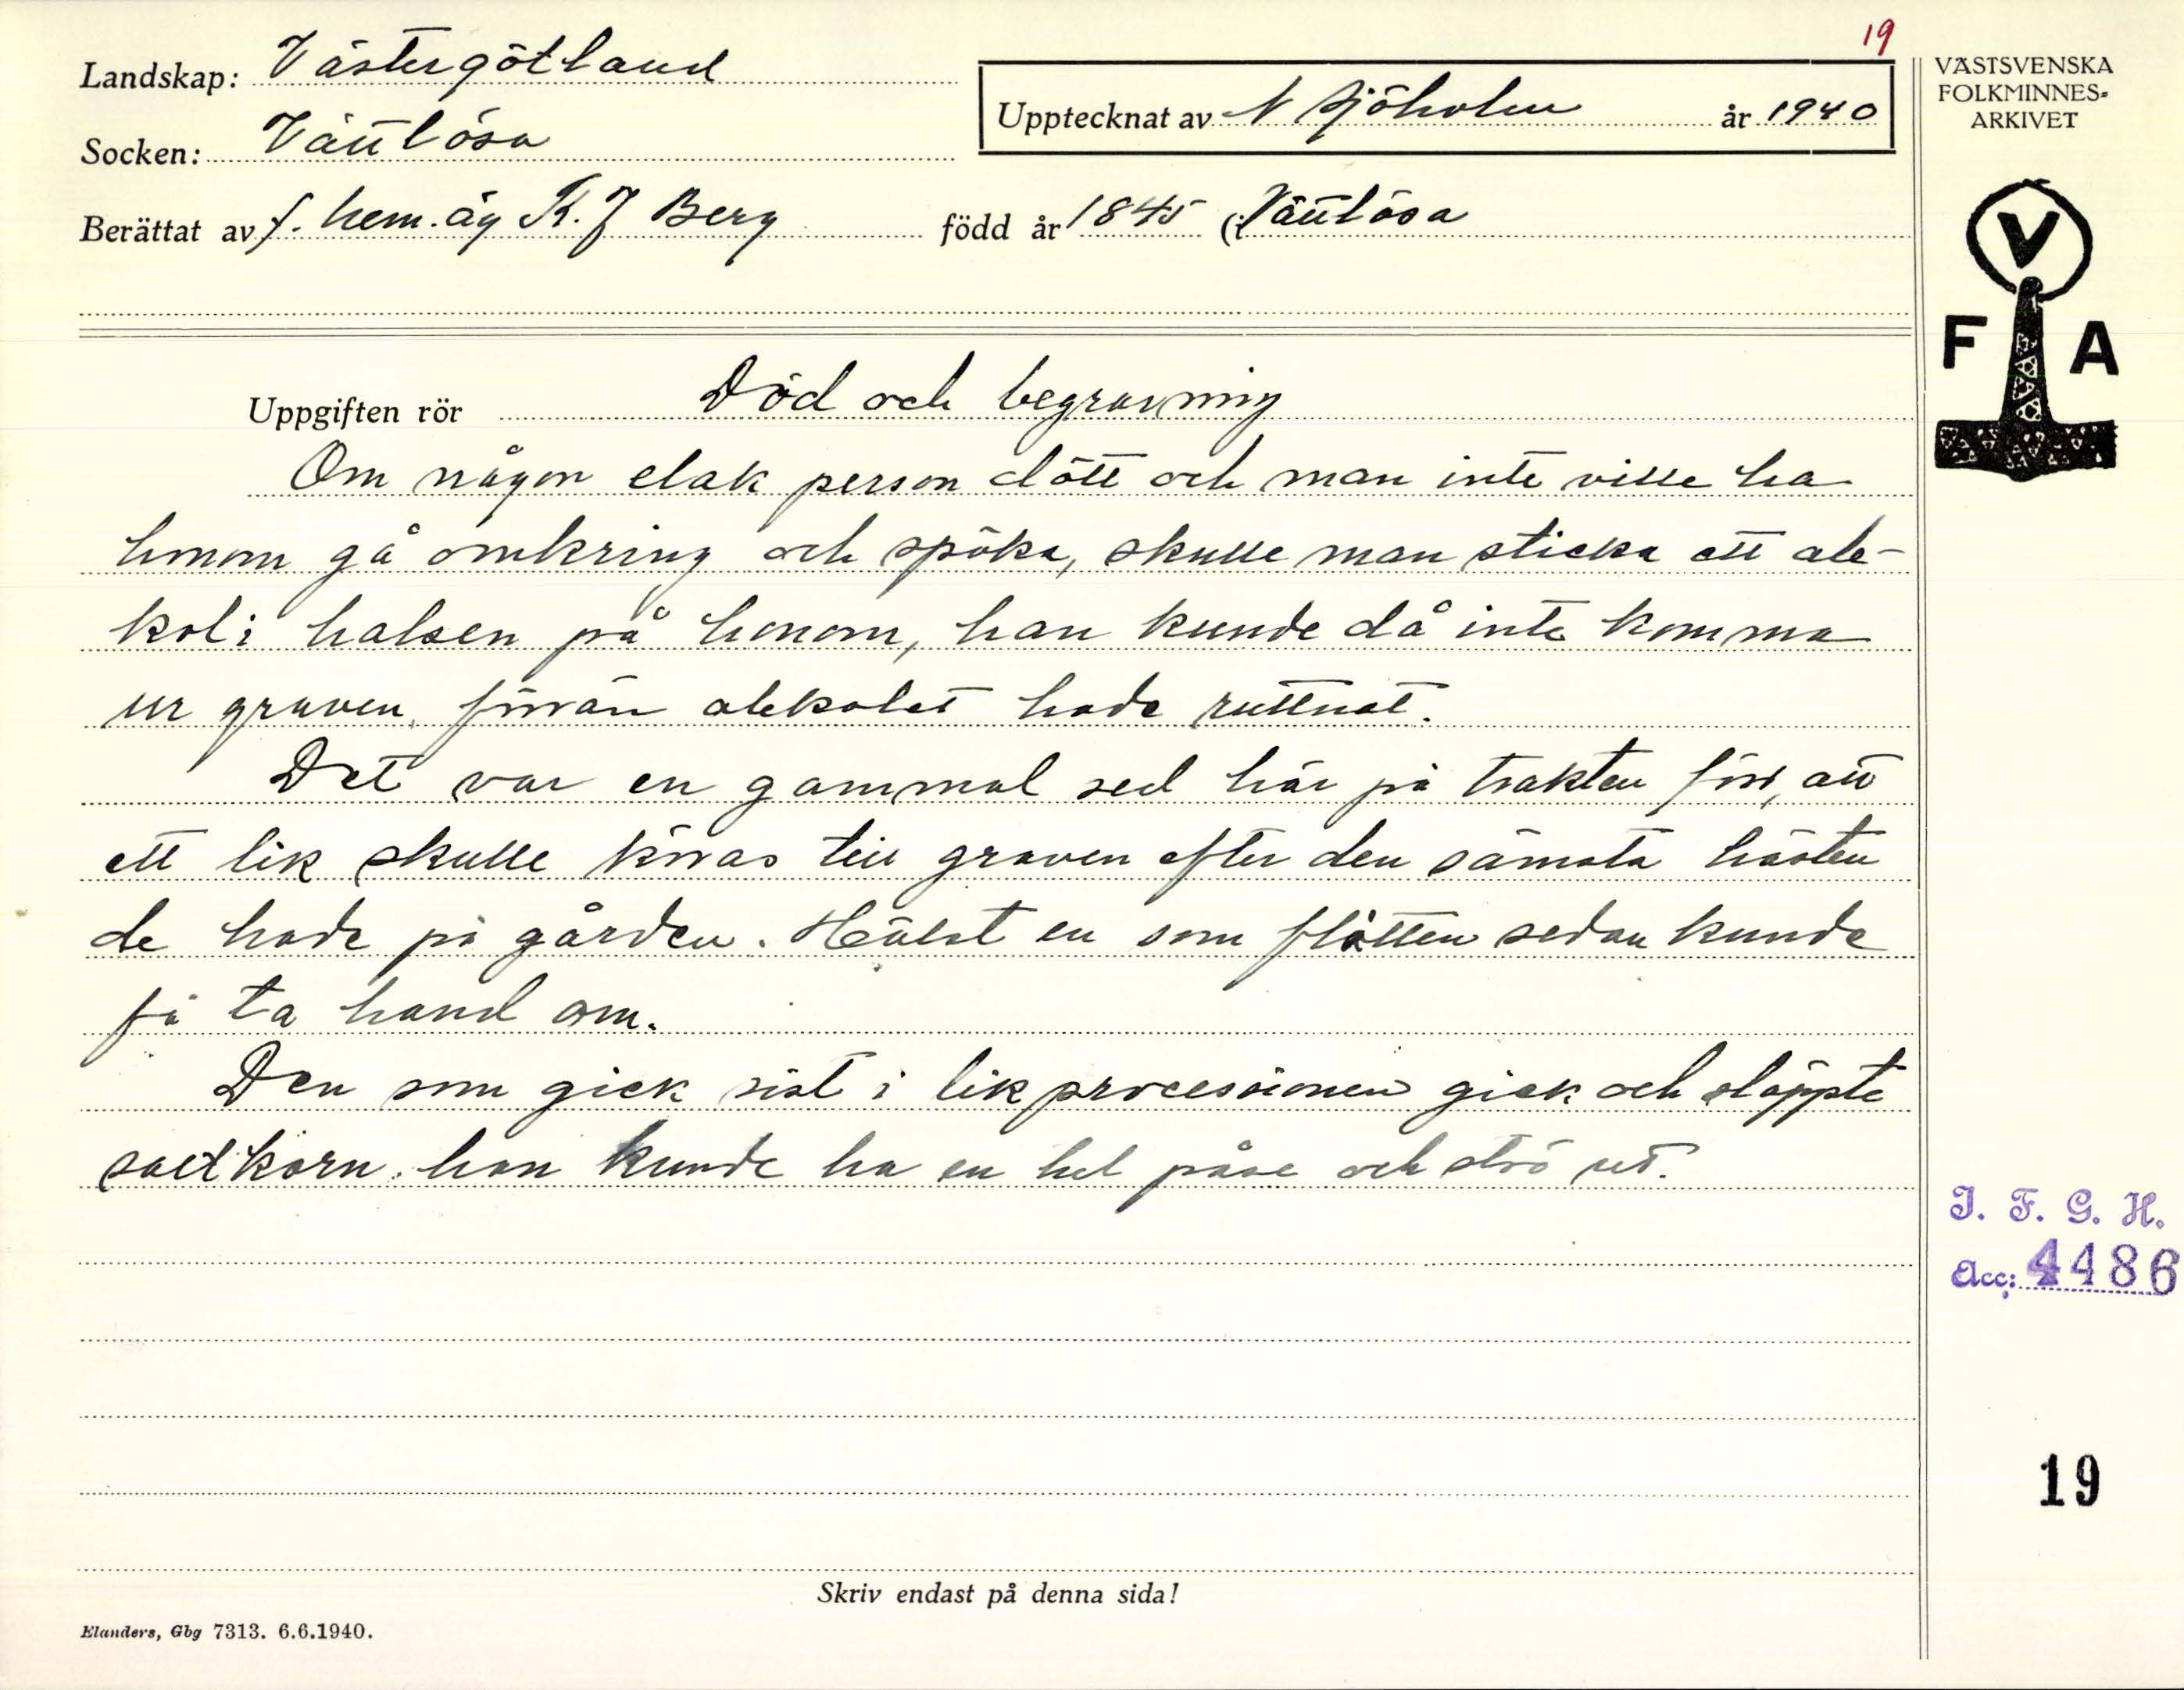 19
Landskap: Västergötland
Socken: Vättlösa
Upptecknat av N Sjöholm år 1940
Berättat av f. hem.äg K. J Berg född år 1845 (i Vättlösa
Uppgiften rör Död och begravning
Om någon elak person dött och man inte ville ha
honom gå omkring och spöka, skulle man sticka ett ale-
kol i halsen på honom, han kunde då inte komma
ur graven, förrän alekolet hade ruttnat.
Det var en gammal sed här på trakten förr, att
ett lik skulle köras till graven efter den sämsta hästen
de hade på gården. Hälst en som flåtten sedan kunde
få ta hand om.
Den som gick sist i likprocessionen gick och släppte
saltkorn, han kunde ha en hel påse och strö ut.
Skriv endast på denna sida!
Elanders, Gbg 7313. 6.6.1940.
VÄSTSVENSKA
FOLKMINNES-
ARKIVET
V
F A
I. F. G. H.
Acc: 4486
19